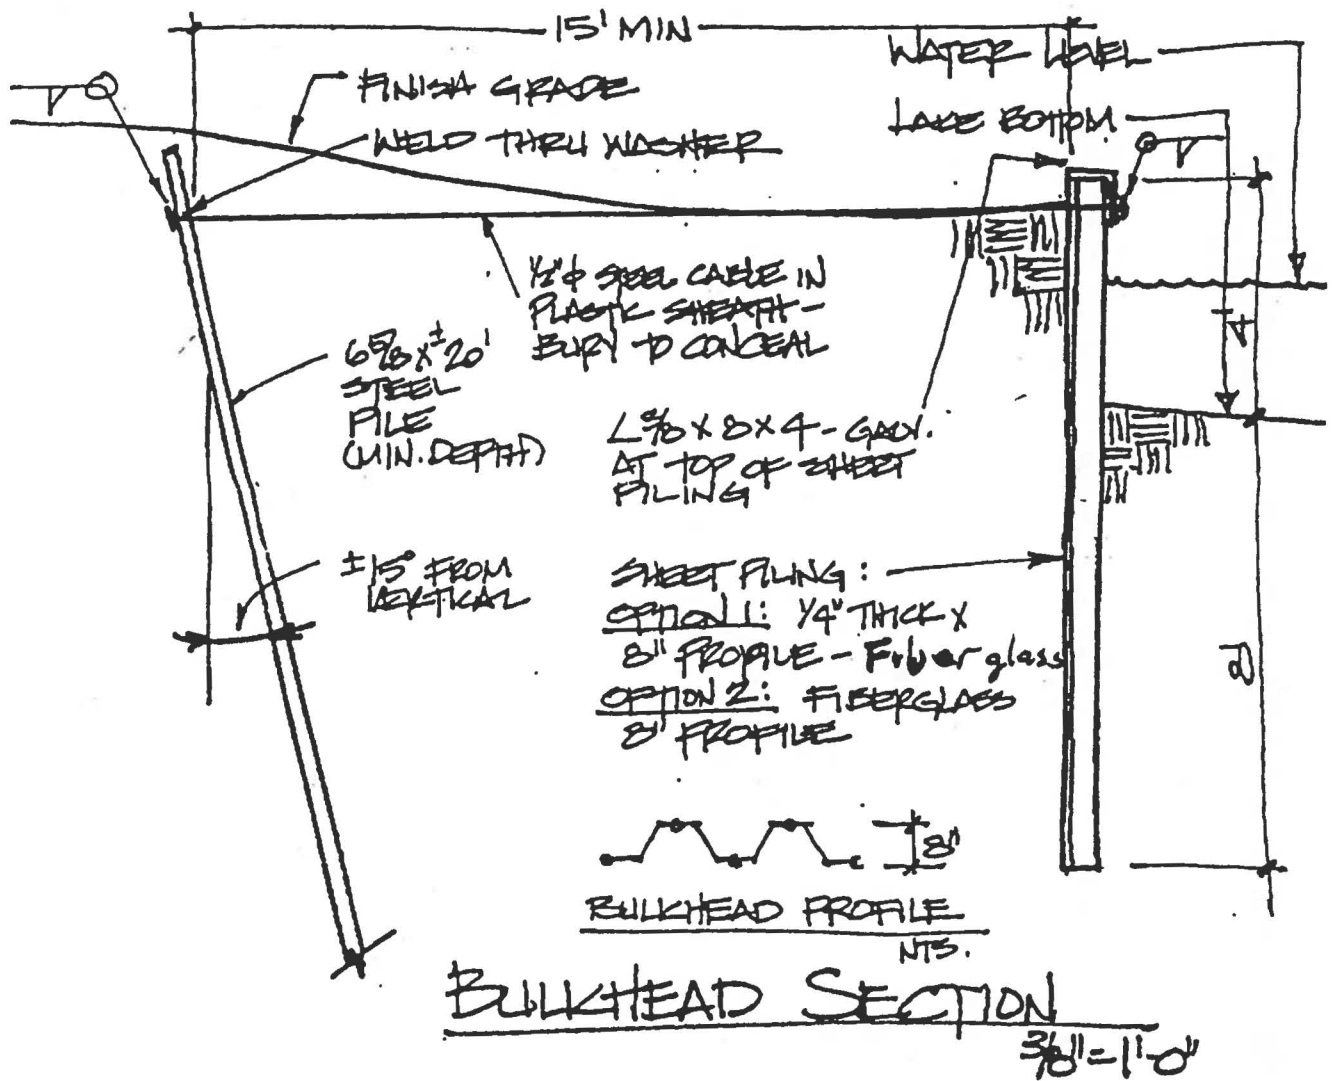 15' MIN
WATER LEVEL
FINISH GRADE
LAKE BOTTOM
WELD THRU WASHER
½"φ STEEL CABLE IN
PLASTIC SHEATH -
BURY TO CONCEAL
6⅝ x ± 20'
STEEL
PILE
(MIN. DEPTH)
L ⅜ x 8 x 4 - GALV.
AT TOP OF SHEET
PILING
±15° FROM
VERTICAL
SHEET PILING:
OPTION 1: ¼" THICK X
8" PROFILE - Fiber glass
OPTION 2: FIBERGLASS
8" PROFILE
8"
BULKHEAD PROFILE
NTS.
BULKHEAD SECTION
⅜" = 1'-0"